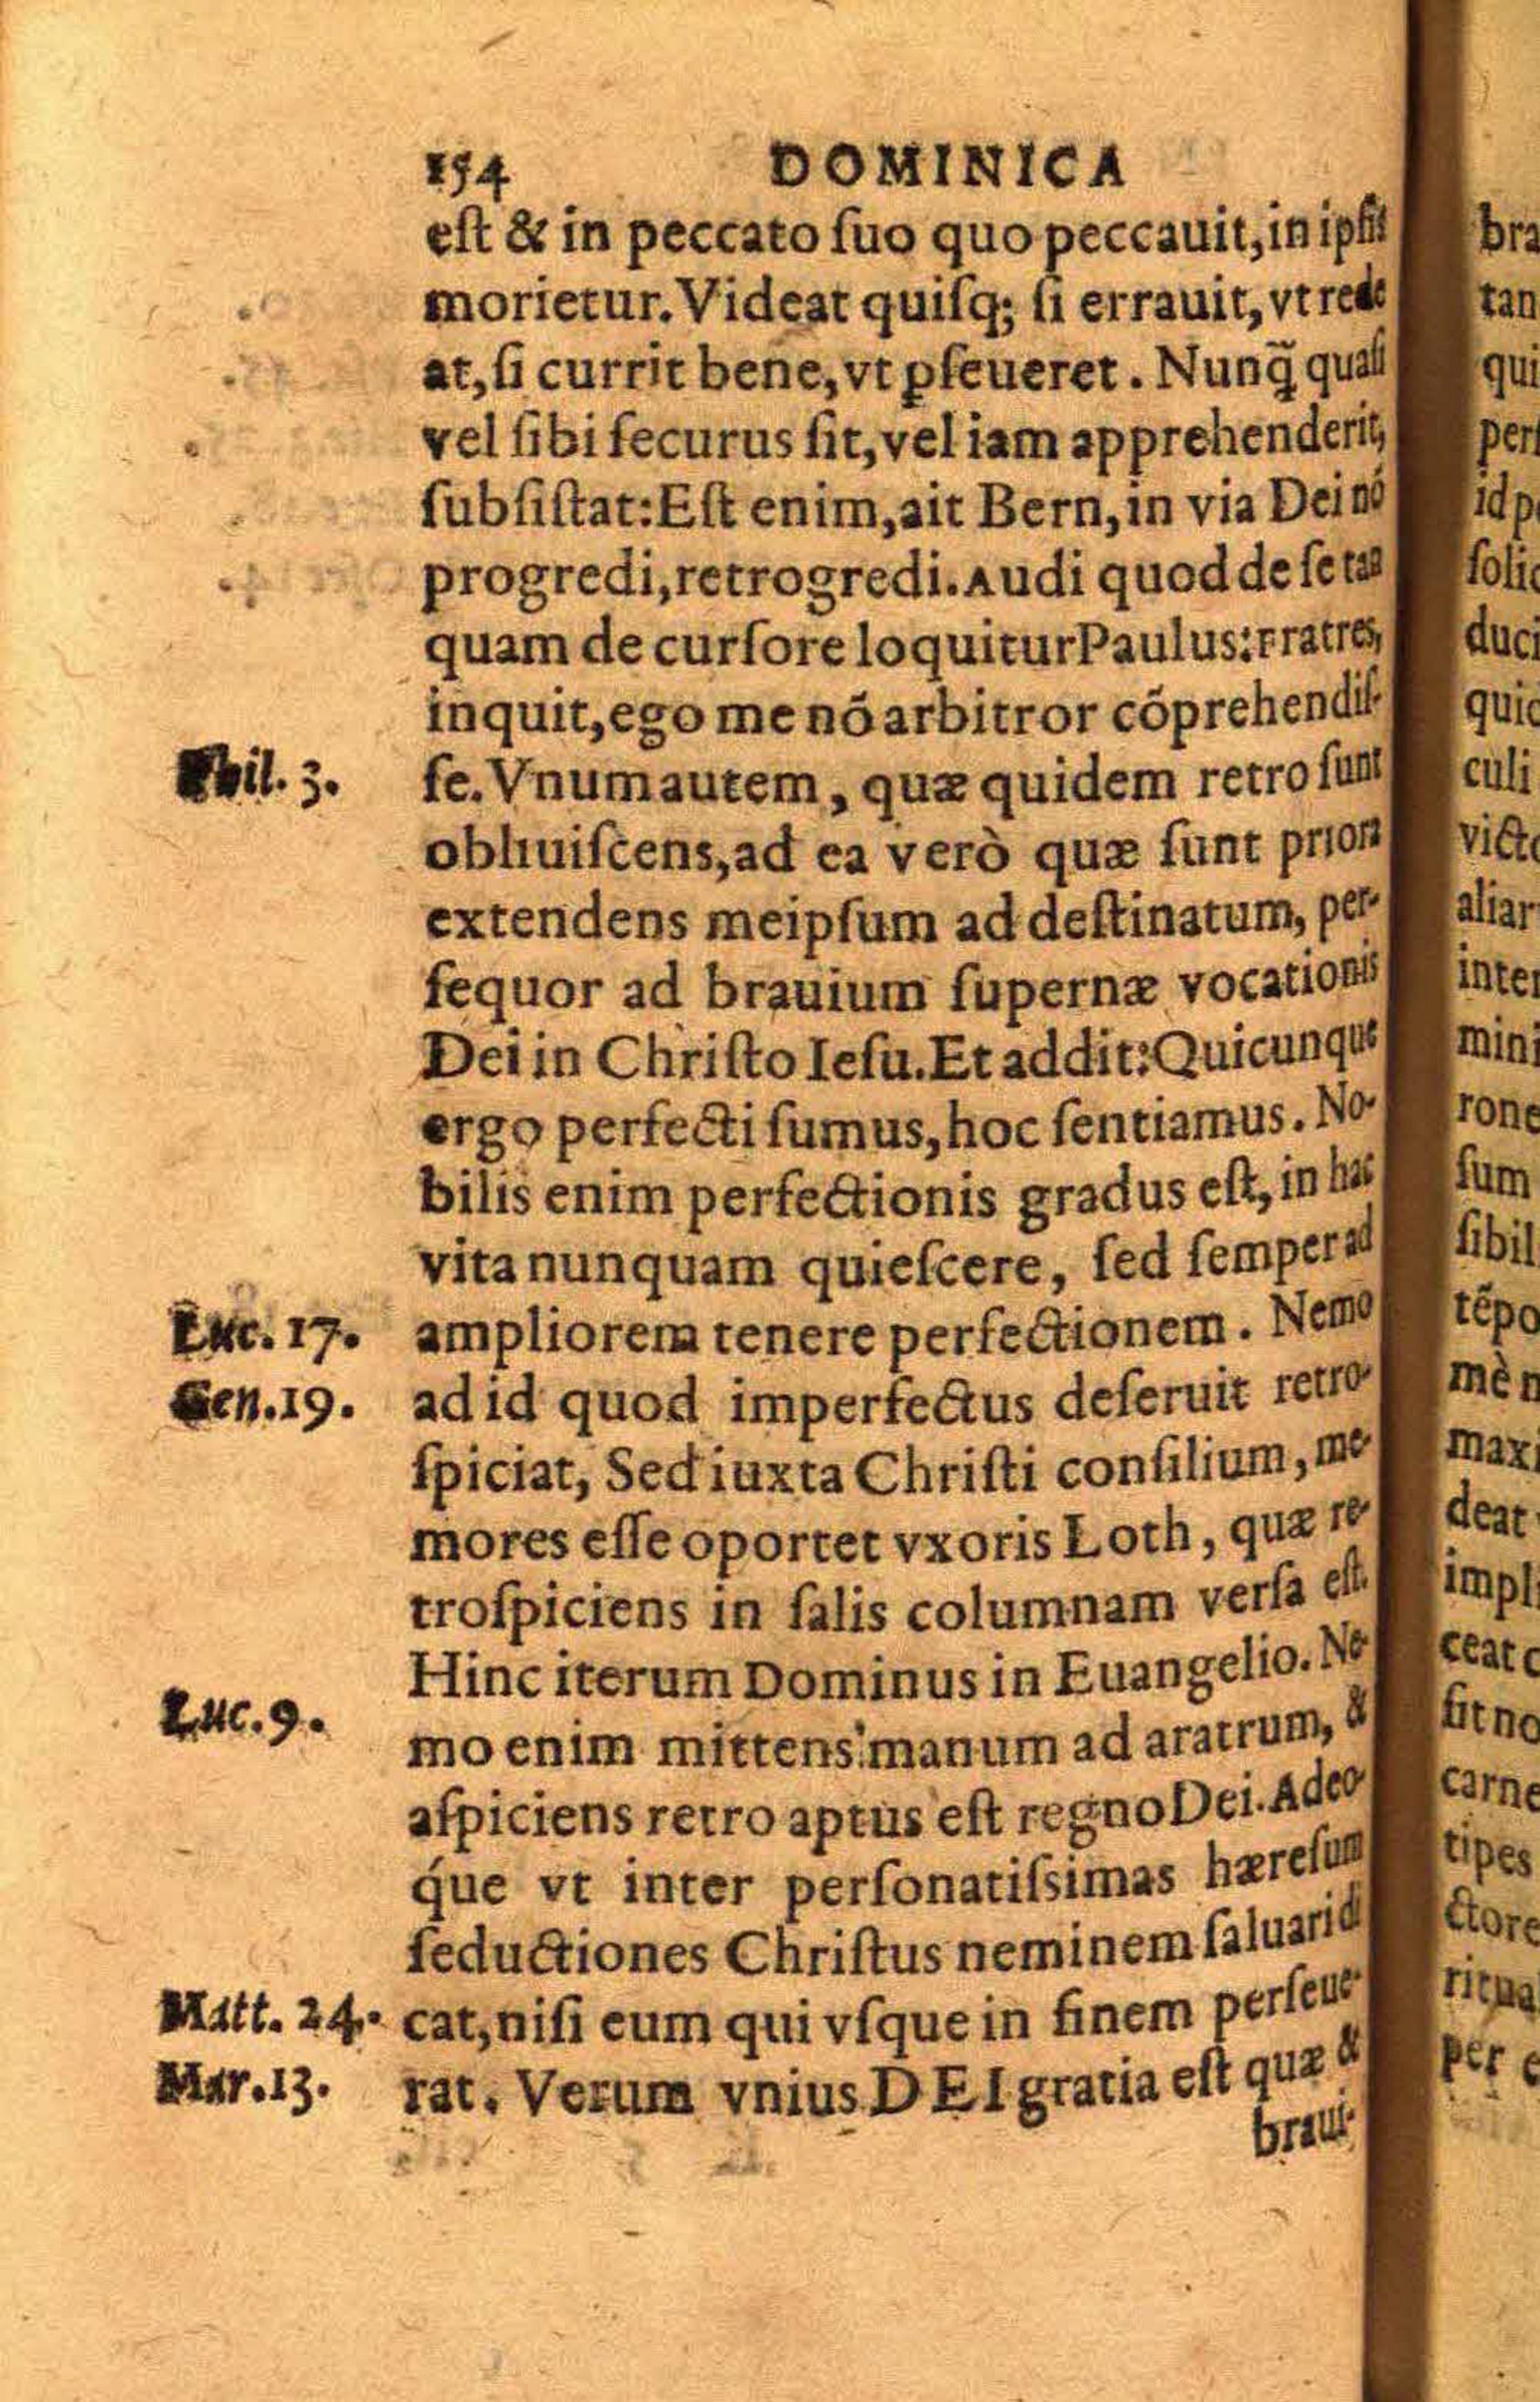 154 DOMINICA
est & in peccato ſuo quo peccauit, in ipſis
morietur. Videat quiſq; ſi errauit, vt rede
at, ſi currit bene, vt ꝑſeueret. Nunq̃ quaſi
vel ſibi ſecurus ſit, vel iam apprehenderit,
ſubſiſtat: Eſt enim, ait Bern, in via Dei nõ
progredi, retrogredi. Audi quod de ſe tan
quam de curſore loquitur Paulus: Fratres,
inquit, ego me nõ arbitror cõprehendiſ-
Phil. 3. ſe. Vnum autem, quæ quidem retro ſunt
obliuiſcens, ad ea verò quæ ſunt priora
extendens meipſum ad deſtinatum, per-
ſequor ad brauium ſupernæ vocationis
Dei in Chriſto Ieſu. Et addit: Quicunque
ergo perfecti ſumus, hoc ſentiamus. No-
bilis enim perfectionis gradus eſt, in hac
vita nunquam quieſcere, ſed ſemper ad
Luc. 17. ampliorem tenere perfectionem. Nemo
Gen. 19. ad id quod imperfectus deſeruit retro-
ſpiciat, Sed iuxta Chriſti conſilium, me-
mores eſſe oportet vxoris Loth, quæ re-
troſpiciens in ſalis columnam verſa eſt.
Hinc iterum Dominus in Euangelio. Ne-
Luc. 9. mo enim mittens manum ad aratrum, &
aſpiciens retro aptus eſt regno Dei. Adeo-
q́ue vt inter perſonatiſsimas hæreſum
ſeductiones Chriſtus neminem ſaluari di
Matt. 24. cat, niſi eum qui vſque in finem perſeue-
Mar. 13. rat. Verum vnius DEI gratia eſt quæ &
braui-